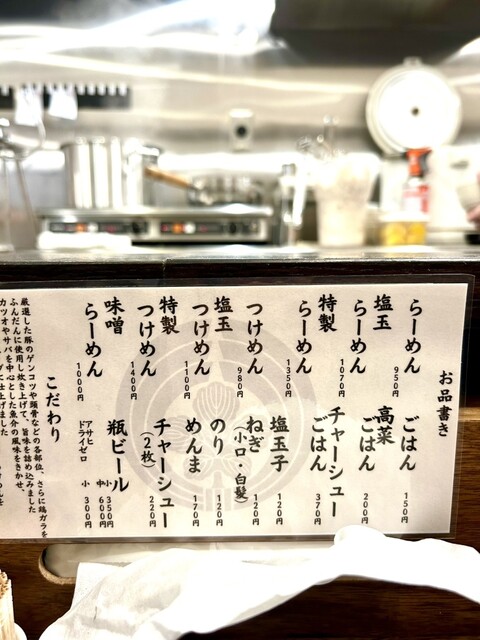 お品書き
らーめん 950円
塩玉らーめん 1070円
特製らーめん 1350円
つけめん 980円
塩玉つけめん 1100円
特製つけめん 1400円
味噌らーめん 1000円
ごはん 150円
高菜ごはん 200円
チャーシューごはん 370円
塩玉子 120円
ねぎ(小口・白髪) 120円
のり 120円
めんま 170円
チャーシュー(2枚) 220円
瓶ビール 小 350円 中 600円
アサヒドライゼロ 小 300円
こだわり
厳選した豚のゲンコツや頭骨などの各部位、さらに鶏ガラを
ふんだんに使用し炊き上げて、旨味を詰め込みました
カツオやサバを中心とした魚介の風味をきかせ、